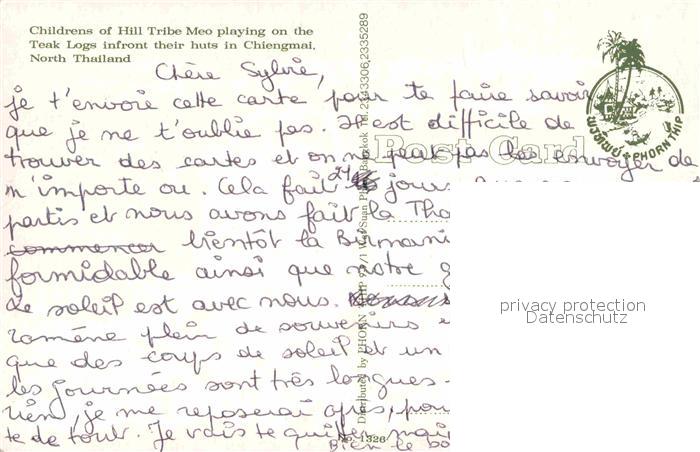 Childrens of Hill Tribe Meo playing on the
Teak Logs infront their huts in Chiengmai,
North Thailand
Post Card
พรทิพย์ PHORNTHIP
Distributed by PHORN THIP 99/1 Wat Suan Bangkok Tel. 2343306, 2335289
No. 1326
Chère Sylvie,
je t'envoie cette carte pour te faire savoir
que je ne t'oublie pas. Il est difficile de
trouver des cartes et on ne peut pas les envoyer de
n'importe ou. Cela fait 24 jours
partis et nous avons fait la Tha
commencer bientôt la Birmani
formidable ainsi que notre g
Le soleil est avec nous.
ramène plein de souvenirs
que des coups de soleil et un
les journées sont très longues.
rien, je me reposerai après, pou
te de tout. Je vais te quitter mai
Bien le bo
privacy protection
Datenschutz